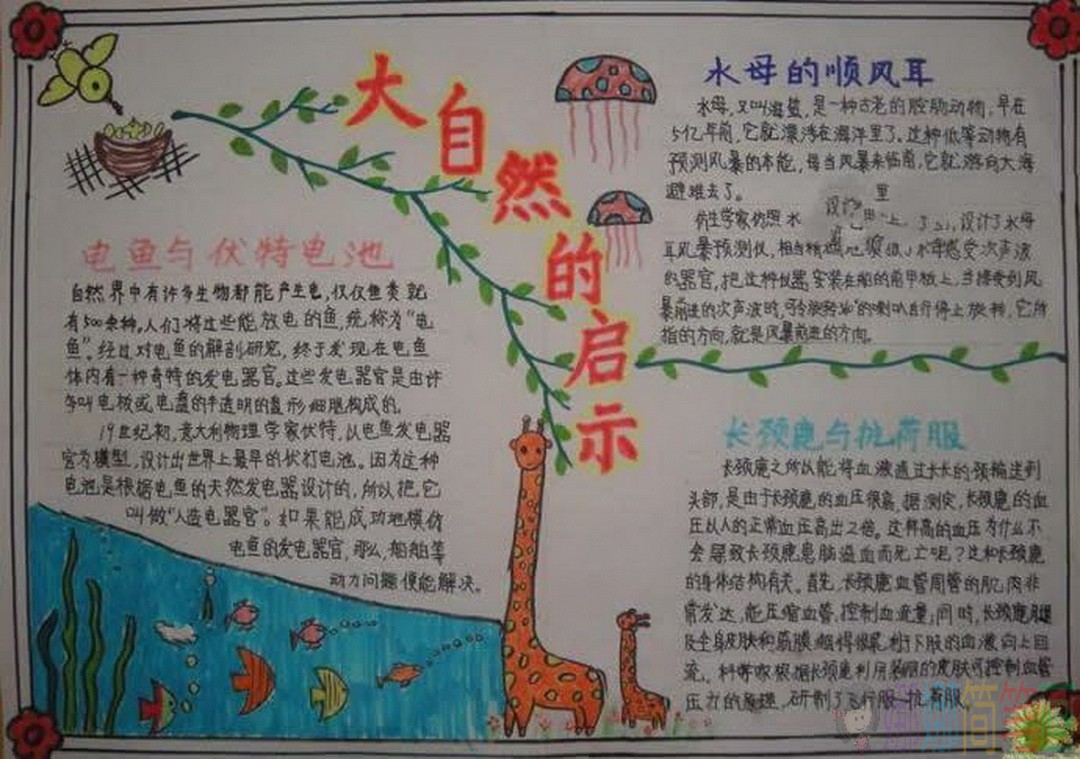 大自然的启示
电鱼与伏特电池
自然界中有许多生物都能产生电,仅仅鱼类就
有500余种。人们将这些能放电的鱼,统称为“电
鱼”。经过对电鱼的解剖研究,终于发现在电鱼
体内有一种奇特的发电器官。这些发电器官是由许
多叫电板或电盘的半透明的盘形细胞构成的。
19世纪初,意大利物理学家伏特,以电鱼发电器
官为模型,设计出世界上最早的伏打电池。因为这种
电池是根据电鱼的天然发电器设计的,所以把它
叫做“人造电器官”。如果能成功地模仿
电鱼的发电器官,那么,船舶等
动力问题便能解决。
水母的顺风耳
水母,又叫海蜇,是一种古老的腔肠动物,早在
5亿年前,它就漂浮在海洋里了。这种低等动物有
预测风暴的本能,每当风暴来临前,它就游向大海
避难去了。
仿生学家仿照水 设计,设计了水母
耳风暴预测仪,相当精 水母感受次声波
的器官,把这种仪器安装在船的前甲板上,当接受到风
暴前进的次声波时,可令旋转 的喇叭自行停止旋转,它所
指的方向,就是风暴前进的方向。
长颈鹿与抗荷服
长颈鹿之所以能将血液通过长长的颈输送到
头部,是由于长颈鹿的血压很高。据测定,长颈鹿的血
压从人的正常血压高出2倍。这样高的血压为什么不
会导致长颈鹿患脑溢血而死亡呢?这和长颈鹿
的身体结构有关。首先,长颈鹿血管周管的肌肉非
常发达,能压缩血管,控制血流量;同时,长颈鹿腿
及全身皮肤和筋膜绷得很 利于下肢的血液向上回
流。科学家根据长颈鹿利用 的皮肤可控制血管
压力的原理,研制了飞行服—抗荷服。
简笔